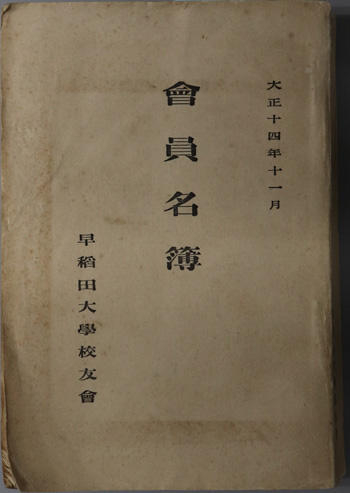 大正十四年十一月
會員名簿
早稻田大學校友會